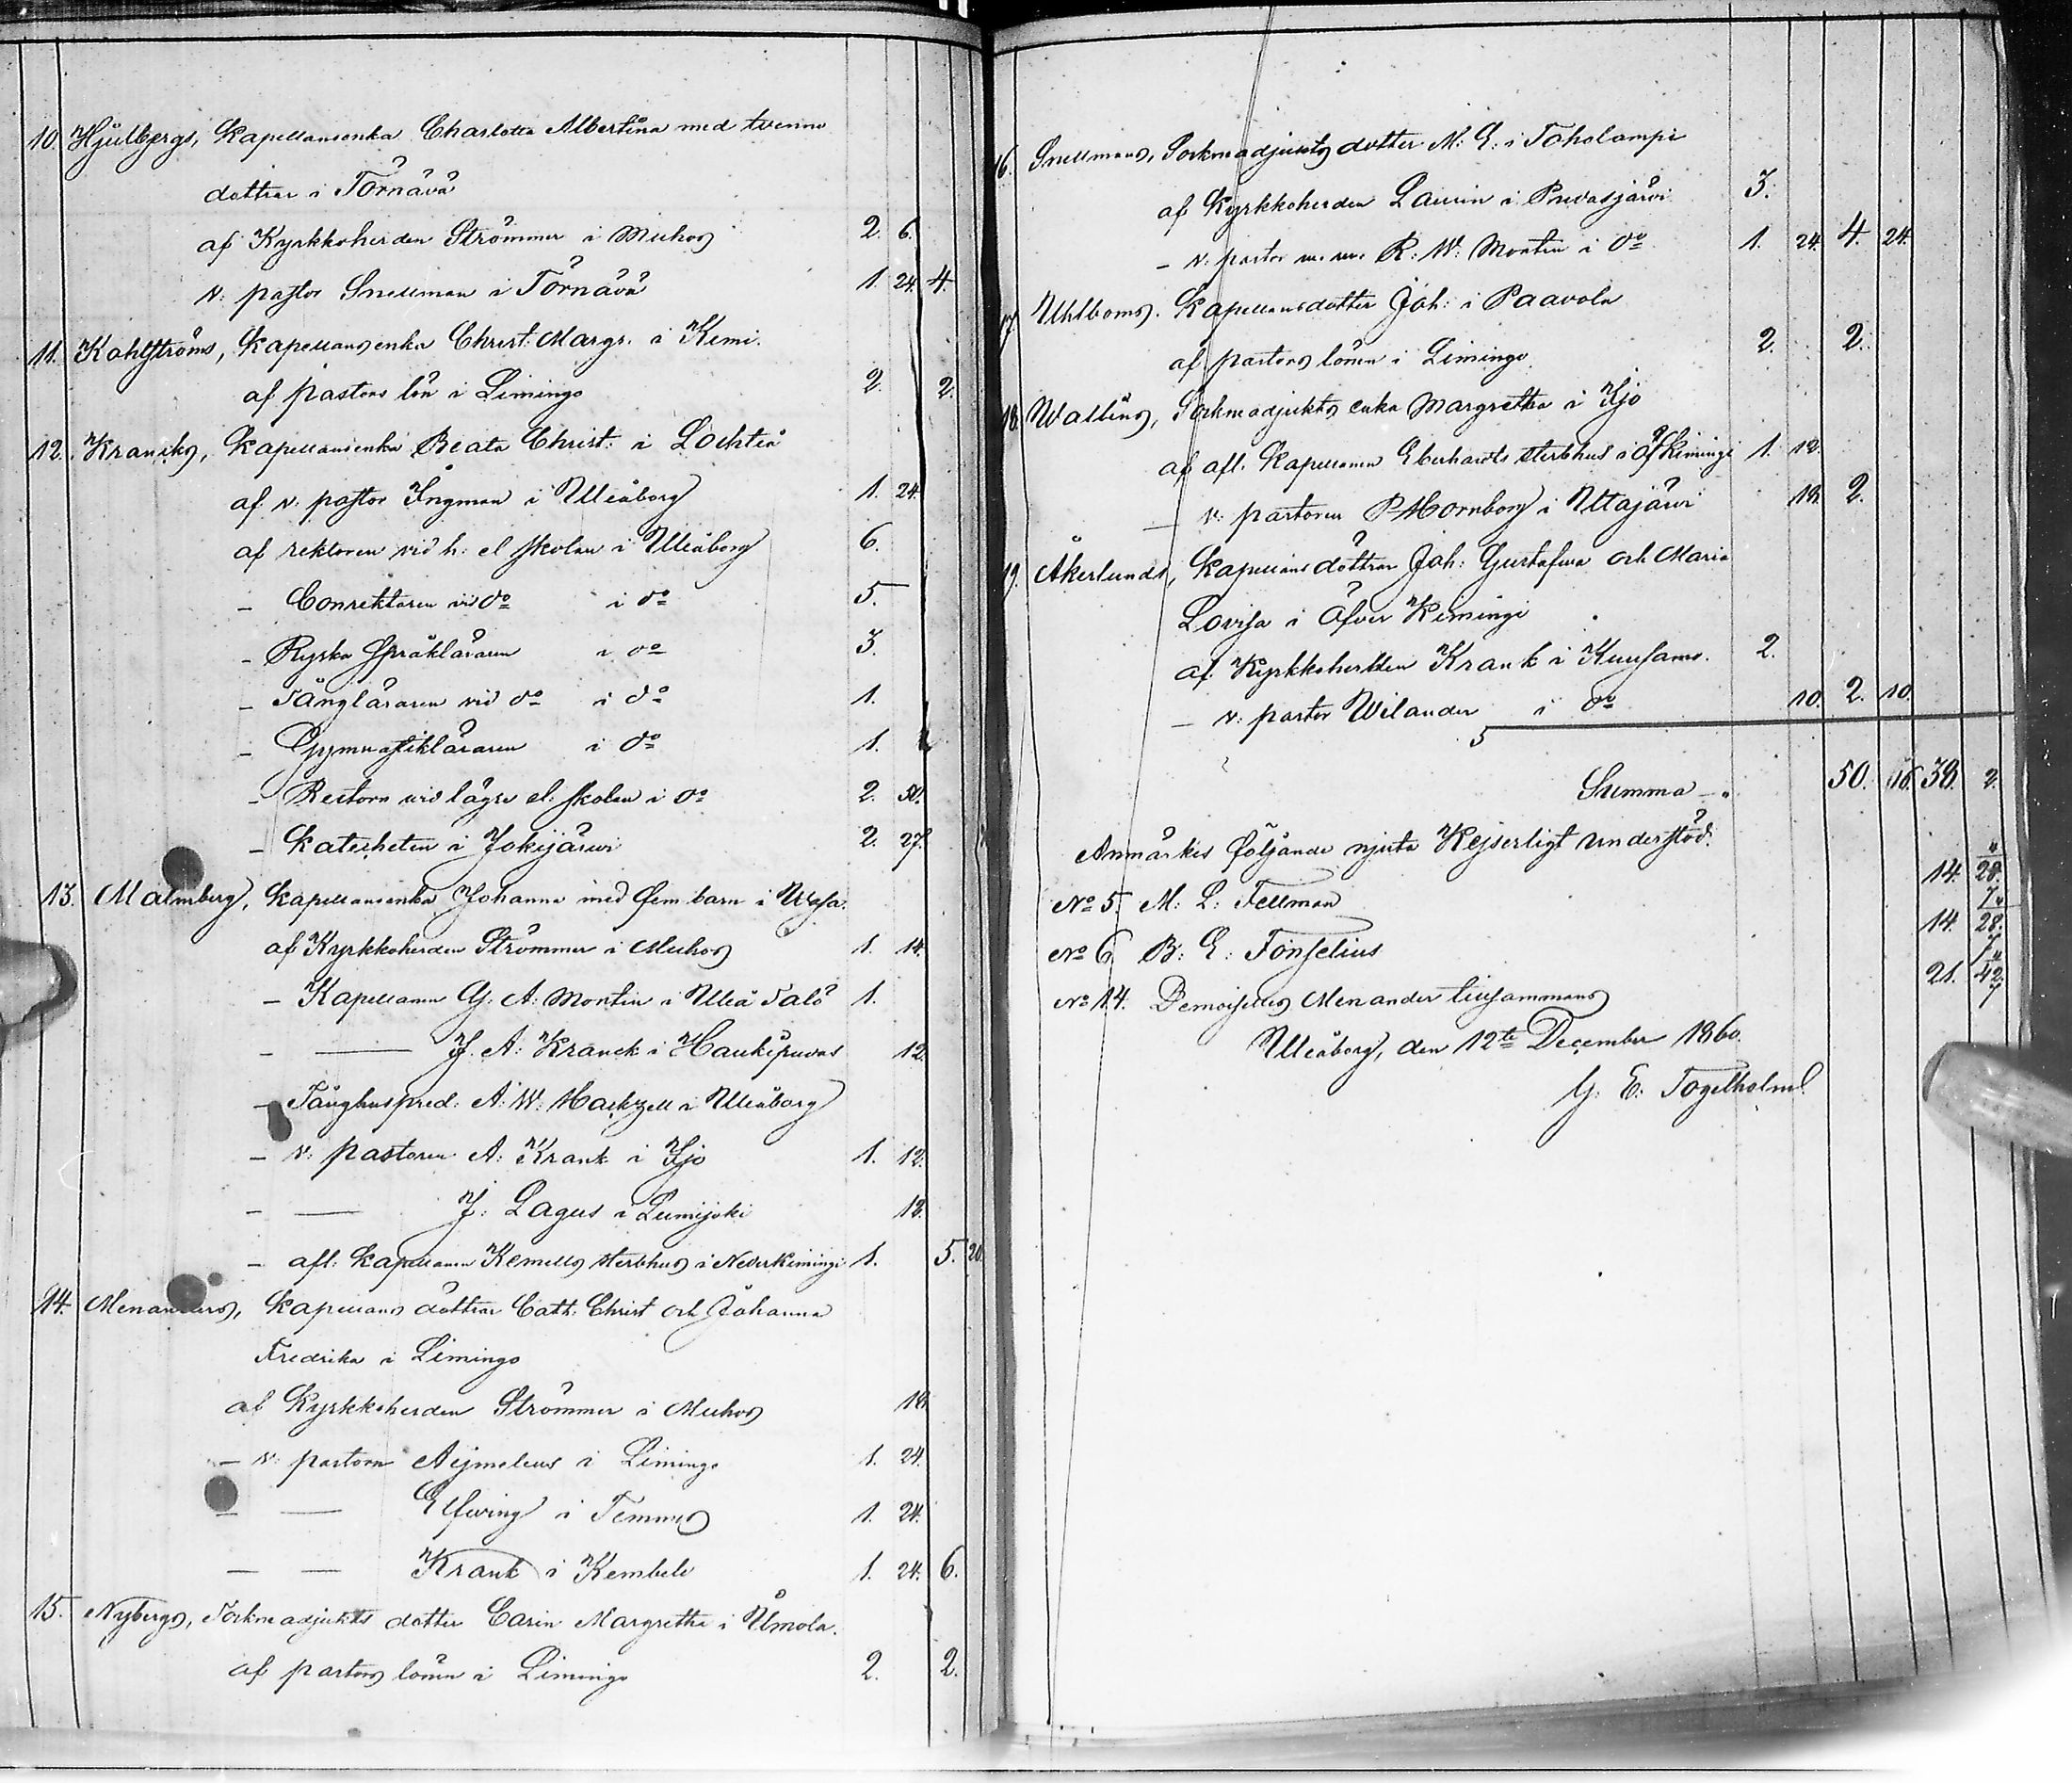 10. Hjulbergs, Kapellansenka Charlotta Albertina med tvenne
döttrar i Törnävä
af Kyrkkoherden Strömmer i Muhos 2. 6.
v: pastor Snellman i Törnävä 1. 24. 4.
11. Kahlströms, Kapellansenka Christ. Margr. i Kemi.
af pastors lön i Limingo 2. 2.
12. Krancks, Kapellansenka Beata Christ: i Lochteå
af v: pastor Ingman i Uleåborg 1. 24.
af rektoren vid h: el skolan i Uleåborg 6.
- Conrektoren vid do i do 5.
- Ryska språkläraren i do 3.
- Sångläraren vid do i do 1.
- Gymnastikläraren i do 1.
- Rectorn vid lägre el. skolan i do 2. 50.
- Katecheten i Jokijärwi 2. 27.
13. Malmberg, Kapellansenka Johanna med fem barn i Wasa.
af Kyrkkoherden Strömmer i Muhos 1. 14.
- Kapellanen G: A: Montin i Uleå Salo 1.
- — J. A: Kranck i Haukipudas 12.
- Fånghuspred: A: W: Hackzell i Uleåborg
- v: pastoren A: Krank i Ijo 1. 12.
- — J: Lagus i Lumijoki 18.
- afl: Kapellanen Kemells sterbhus i Neder Kiminge 1. 5. 20.
14. Menanders, Kapellans döttrar Cath: Christ och Johanna
Fredrika i Limingo
af Kyrkkoherden Strömmer i Muhos 18.
- v: pastorn Aejmeleus i Limingo 1. 24.
- — Elfwing i Temmes 1. 24.
- — Krank i Kembele 1. 24. 6.
15. Nybergs, Sockneadjunkts dotter Carin Margretha i Uhmola.
af pastors lönen i Limingo 2. 2.
16. Snellmans, Sockneadjunkts dotter M: E: i Toholampi
af Kyrkkoherden Laurin i Pudasjärvi 3.
- v: pastor m. m. R: W: Montin i do 1. 24. 4. 24.
17. Uhlboms. Kapellansdotter Joh: i Paavola
af pastors lönen i Limingo 2. 2.
18. Wallins, Sockneadjunkts enka Margretha i Ijo
af afl. Kapellanen Eberhardts sterbhus i Öf Kiminge 1. 12.
- v: pastoren P Hornborg i Uttajärvi 18. 2.
19. Åkerlunds, Kapellans döttrar Joh: Gustafva och Maria
Lovisa i Öfver Kiminge
af Kyrkkoherden Krank i Kuusamo. 2.
- v: pastor Wilander i do 10. 2. 10.
Summa 50. 16. 38. 2.
Anmärkes följande njuta Kejserligt understöd.
No 5. M: L: Fellman 14. 28.
No 6 B: E: Fonselius 14. 28.
No 14. Demoiselles Menander tillsammans 21. 42
Uleåborg, den 12te December 1860.
G: E: Fogelholm.